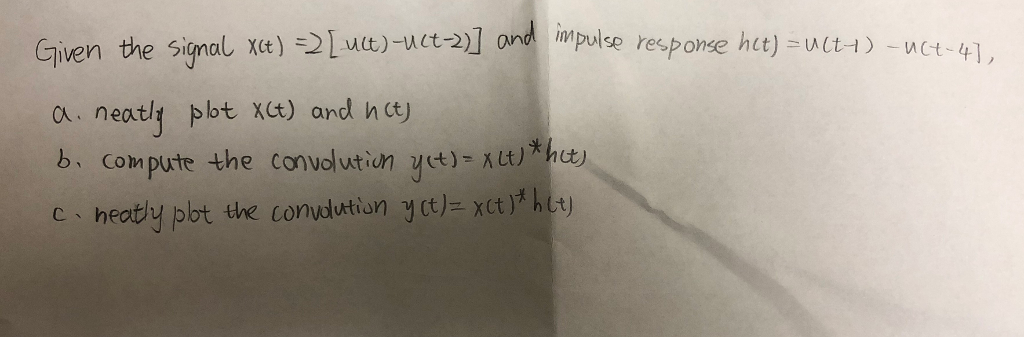 Given the signal x(t) = 2[u(t)-u(t-2)] and impulse response h(t) = u(t-1) - u(t-4),
a. neatly plot x(t) and h(t)
b. compute the convolution y(t) = x(t)*h(t)
c. neatly plot the convolution y(t) = x(t)*h(t)